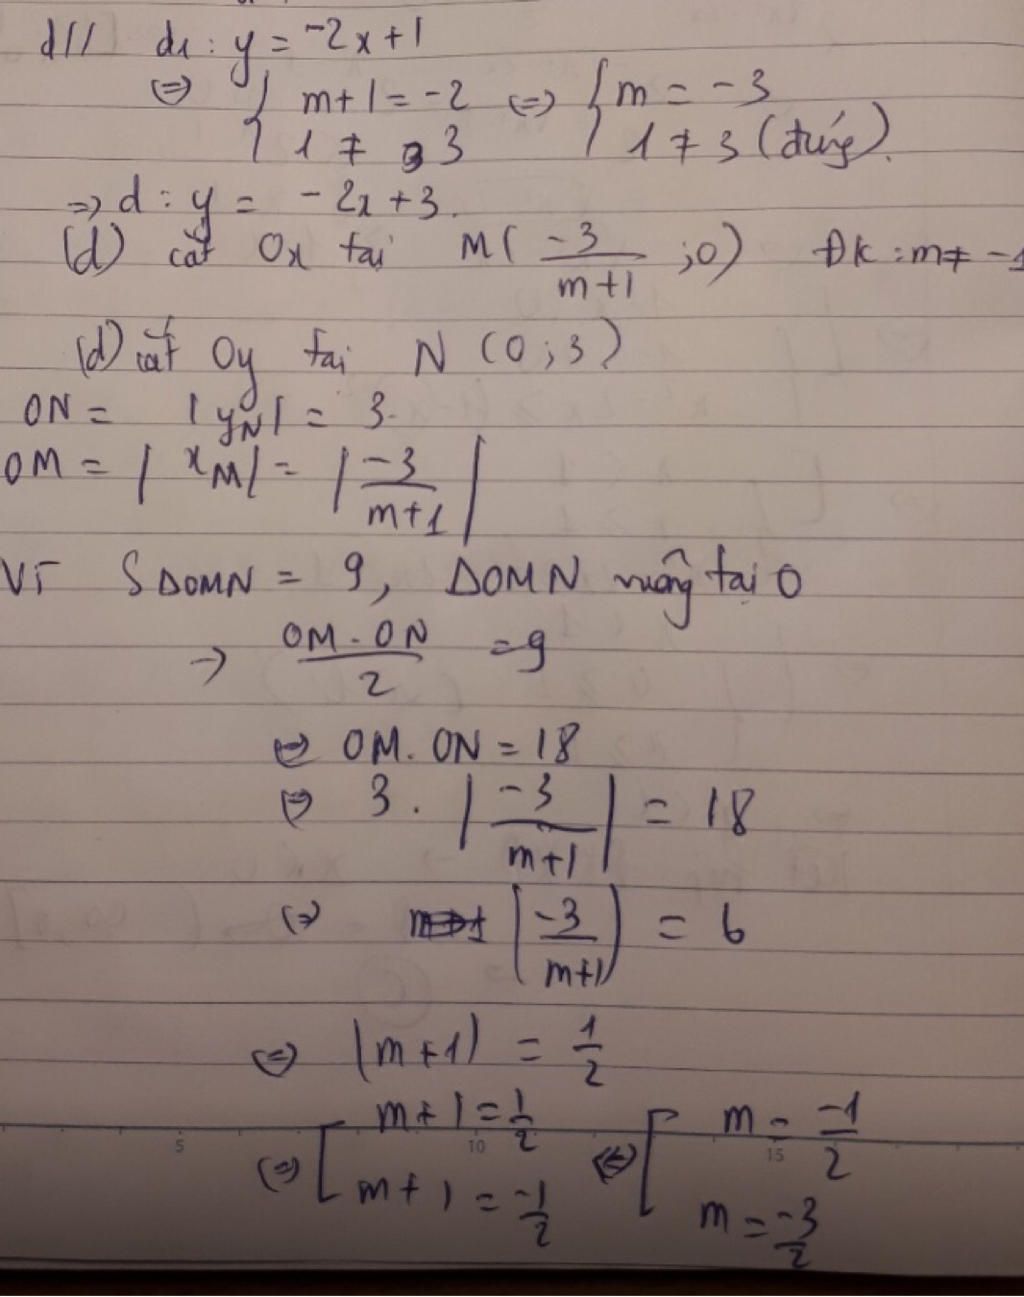 d // d1 : y = -2x+1
<=> { m+1 = -2 <=> { m = -3
1 ≠ 3 1 ≠ 3 (đúng).
=> d : y = -2x+3.
(d) cắt Ox tại M( -3/(m+1) ;0) ĐK : m ≠ -1
(d) cắt Oy tại N (0 ; 3)
ON = |yN| = 3.
OM = |xM| = |-3/(m+1)|
Vì SΔOMN = 9, ΔOMN vuông tại O
-> OM.ON/2 = 9
<=> OM.ON = 18
<=> 3 . |-3/(m+1)| = 18
<=> |-3/(m+1)| = 6
<=> |m+1| = 1/2
<=> [ m+1 = 1/2 <=> [ m = -1/2
m+1 = -1/2 m = -3/2
5 10 15